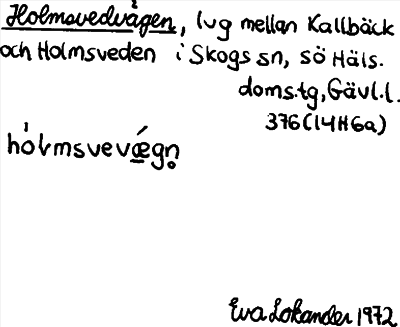 Holmsvedvägen, lvg mellan Kallbäck
och Holmsveden i Skogs sn, sö Häls.
doms.tg, Gävl.l.
376(14H6a)
hòlmsvevǽgn̥
Eva Lokander 1972